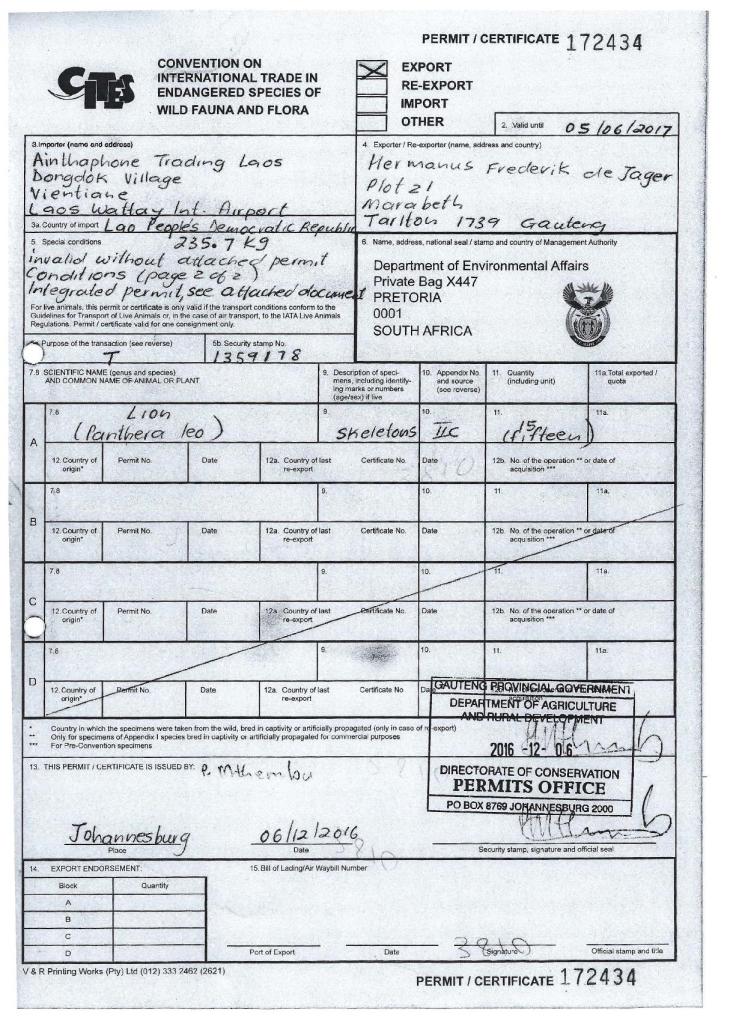 PERMIT / CERTIFICATE 172434
CITES
CONVENTION ON
INTERNATIONAL TRADE IN
ENDANGERED SPECIES OF
WILD FAUNA AND FLORA
EXPORT
RE-EXPORT
IMPORT
OTHER
2. Valid until 05/06/2017
3.Importer (name and address)
Ainthaphone Trading Laos
Dongdok Village
Vientiane
Laos Wattay Int. Airport
3a.Country of import Lao People's Democratic Republic
4. Exporter / Re-exporter (name, address and country)
Hermanus Frederik de Jager
Plot 21
Marabeth
Tarlton 1739 Gauteng
5. Special conditions 235.7 Kg
invalid without attached permit
Conditions (page 2 of 2)
Integrated permit, see attached document
For live animals, this permit or certificate is only valid if the transport conditions conform to the
Guidelines for Transport of Live Animals or, in the case of air transport, to the IATA Live Animals
Regulations. Permit / certificate valid for one consignment only.
6. Name, address, national seal / stamp and country of Management Authority
Department of Environmental Affairs
Private Bag X447
PRETORIA
0001
SOUTH AFRICA
Purpose of the transaction (see reverse)
T
5b. Security stamp No.
1359178
7.8 SCIENTIFIC NAME (genus and species)
AND COMMON NAME OF ANIMAL OR PLANT
9. Description of speci-
mens, including identify-
ing marks or numbers
(age/sex) if live
10. Appendix No
and source
(see reverse)
11. Quantity
(including unit)
11a.Total exported /
quota
A
7.8 Lion
(Panthera leo)
9. Skeletons
10. IIC
11. 15
(fifteen)
11a.
12. Country of origin* Permit No. Date 12a. Country of last re-export Certificate No. Date 12b. No. of the operation ** or date of acquisition ***
B
7.8 9. 10. 11. 11a.
12. Country of origin* Permit No. Date 12a. Country of last re-export Certificate No. Date 12b. No. of the operation ** or date of acquisition ***
C
7.8 9. 10. 11. 11a.
12. Country of origin* Permit No. Date 12a. Country of last re-export Certificate No. Date 12b. No. of the operation ** or date of acquisition ***
D
7.8 9. 10. 11. 11a.
12. Country of origin* Permit No. Date 12a. Country of last re-export Certificate No.
* Country in which the specimens were taken from the wild, bred in captivity or artificially propagated (only in case of re-export)
** Only for specimens of Appendix I species bred in captivity or artificially propagated for commercial purposes
*** For Pre-Convention specimens
GAUTENG PROVINCIAL GOVERNMENT
DEPARTMENT OF AGRICULTURE
AND RURAL DEVELOPMENT
2016 -12- 06
DIRECTORATE OF CONSERVATION
PERMITS OFFICE
PO BOX 8769 JOHANNESBURG 2000
13. THIS PERMIT / CERTIFICATE IS ISSUED BY: P. Mthembu
Johannesburg
Place
06/12/2016
Date
Security stamp, signature and official seal
14. EXPORT ENDORSEMENT:
Block Quantity
A
B
C
D
15.Bill of Lading/Air Waybill Number
3810
Port of Export Date Signature Official stamp and title
V & R Printing Works (Pty) Ltd (012) 333 2462 (2621)
PERMIT / CERTIFICATE 172434